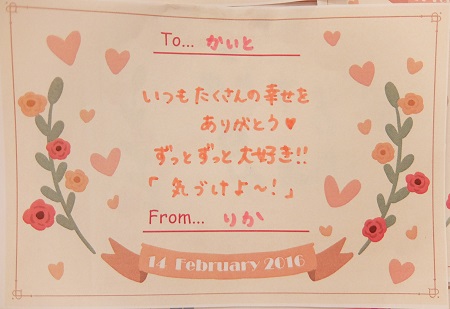 To... かいと
いつもたくさんの幸せを
ありがとう♥
ずっとずっと大好き!!
「気づけよ〜!」
From... りか
14 February 2016